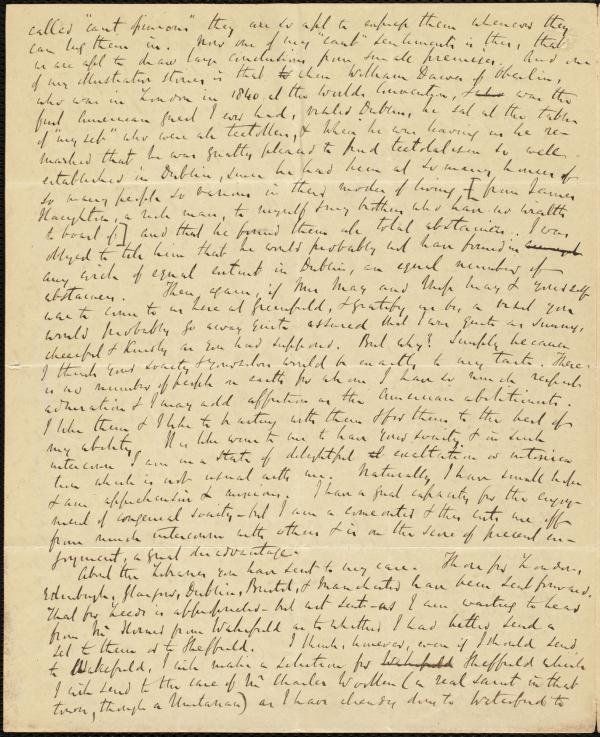 called "cant opinions" they are so apt to express them whenever they
can lug them in. Now one of my "cant" sentiments is this, that
we are apt to draw large conclusions from small premises. And one
of my illustrative stories is that when William Dawes of Oberlin,
who was in London in 1840 at the World's Convention, & was the
first American guest I ever had, visited Dublin, he sat at the tables
of "my set" who were all teetotallers, & when he was leaving us he re-
marked that he was greatly pleased to find teetotalism so well
established in Dublin, since he had been at so many houses of
so many people so various in their modes of living, [from James
Haughton, a rich man, to myself & my brothers who have no wealth
to boast of] and that he found them all total abstainers. I was
obliged to tell him that he would probably not have found in
any circle of equal extent in Dublin, an equal number of
abstainers. Then, again, if Mr May and Miss May & yourself
were to come to us here at Greenfield, & gratify us by a visit you
would probably go away quite assured that I was quite as sunny,
cheerful & kindly as you had supposed. But why? Simply because
I think your society & yourselves would be exactly to my taste. There
is no number of people on earth for whom I have so much respect
admiration & I may add affection as the American abolitionists.
I like them & I like to be acting with them & for them to the best of
my ability. It is like wine to me to have your society & in such
intercourse I am in a state of delightful exaltation or intoxica
tion which is not usual with me. Naturally, I have small hope
& am apprehensive & anxious. I have a great capacity for the enjoy-
ment of congenial society - but I am a comeouter & this cuts me off
from much intercourse with others & is on the score of present en-
joyment, a great disadvantage.
About the Libraries you have sent to my care. Those for London,
Edinburgh, Glasgow, Dublin, Bristol, & Manchester have been sent forward.
That for Leeds is appropriated - but not sent - as I am waiting to hear
from Mr from Wakefield as to whether I had better send a
set to them or to Sheffield. I think, however, even if I should send
to Wakefield, I will make a selection for Wakefield Sheffield which
I will send to the care of Mr Charles (a real saint in that
town, though a Unitarian) as I have already done to Waterford to